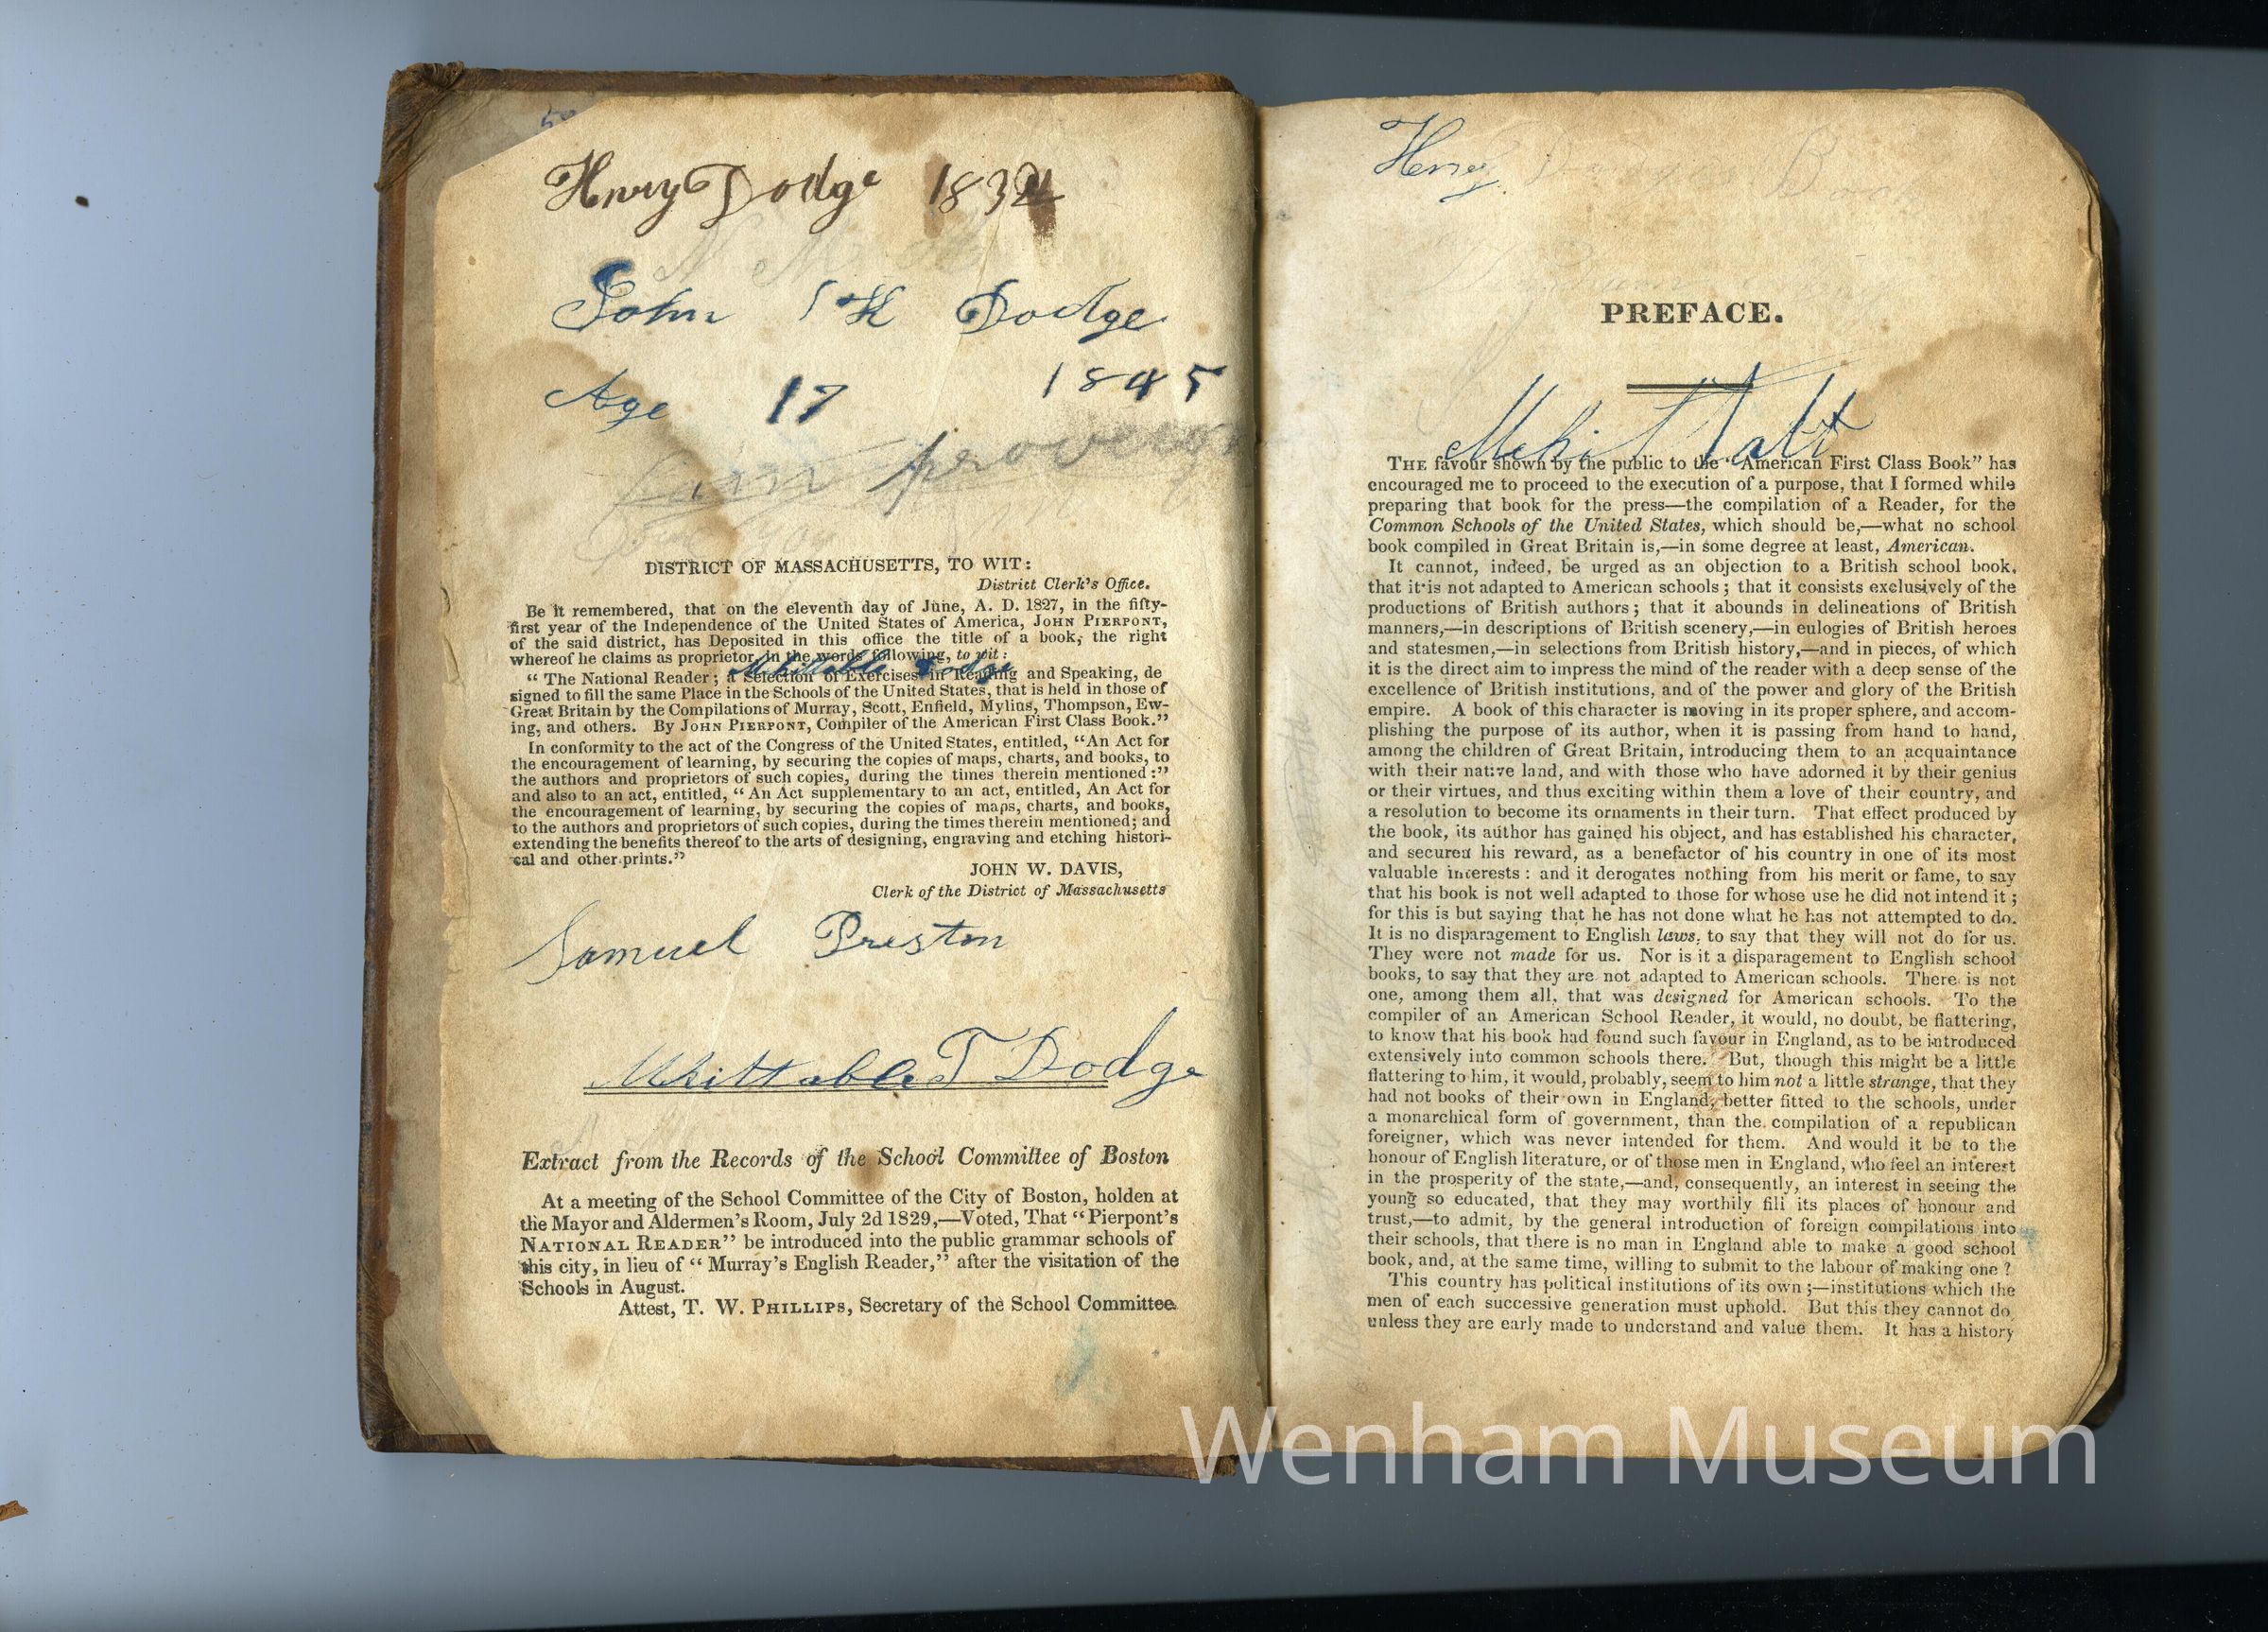 Henry Dodge 1832
John K Dodge
Age 17 1845
DISTRICT OF MASSACHUSETTS, TO WIT:
District Clerk's Office.
Be it remembered, that on the eleventh day of June, A. D. 1827, in the fifty-
first year of the Independence of the United States of America, JOHN PIERPONT,
of the said district, has Deposited in this office the title of a book, the right
whereof he claims as proprietor, in the words following, to wit:
Mehittable Dodge
“ The National Reader; a Selection of Exercises in Reading and Speaking, de
signed to fill the same Place in the Schools of the United States, that is held in those of
Great Britain by the Compilations of Murray, Scott, Enfield, Mylius, Thompson, Ew-
ing, and others. By JOHN PIERPONT, Compiler of the American First Class Book.”
In conformity to the act of the Congress of the United States, entitled, “An Act for
the encouragement of learning, by securing the copies of maps, charts, and books, to
the authors and proprietors of such copies, during the times therein mentioned:”
and also to an act, entitled, “ An Act supplementary to an act, entitled, An Act for
the encouragement of learning, by securing the copies of maps, charts, and books,
to the authors and proprietors of such copies, during the times therein mentioned; and
extending the benefits thereof to the arts of designing, engraving and etching histori-
cal and other prints.”
JOHN W. DAVIS,
Clerk of the District of Massachusetts
Samuel Preston
Mehittable T Dodge
Extract from the Records of the School Committee of Boston
At a meeting of the School Committee of the City of Boston, holden at
the Mayor and Aldermen's Room, July 2d 1829,—Voted, That “Pierpont's
NATIONAL READER” be introduced into the public grammar schools of
this city, in lieu of “ Murray's English Reader,” after the visitation of the
Schools in August.
Attest, T. W. PHILLIPS, Secretary of the School Committee
Henry
PREFACE.
THE favour shown by the public to the “American First Class Book” has
encouraged me to proceed to the execution of a purpose, that I formed while
preparing that book for the press—the compilation of a Reader, for the
Common Schools of the United States, which should be,—what no school
book compiled in Great Britain is,—in some degree at least, American.
It cannot, indeed, be urged as an objection to a British school book,
that it is not adapted to American schools; that it consists exclusively of the
productions of British authors; that it abounds in delineations of British
manners,—in descriptions of British scenery,—in eulogies of British heroes
and statesmen,—in selections from British history,—and in pieces, of which
it is the direct aim to impress the mind of the reader with a deep sense of the
excellence of British institutions, and of the power and glory of the British
empire. A book of this character is moving in its proper sphere, and accom-
plishing the purpose of its author, when it is passing from hand to hand,
among the children of Great Britain, introducing them to an acquaintance
with their native land, and with those who have adorned it by their genius
or their virtues, and thus exciting within them a love of their country, and
a resolution to become its ornaments in their turn. That effect produced by
the book, its author has gained his object, and has established his character,
and secured his reward, as a benefactor of his country in one of its most
valuable interests: and it derogates nothing from his merit or fame, to say
that his book is not well adapted to those for whose use he did not intend it;
for this is but saying that he has not done what he has not attempted to do.
It is no disparagement to English laws, to say that they will not do for us.
They were not made for us. Nor is it a disparagement to English school
books, to say that they are not adapted to American schools. There is not
one, among them all, that was designed for American schools. To the
compiler of an American School Reader, it would, no doubt, be flattering,
to know that his book had found such favour in England, as to be introduced
extensively into common schools there. But, though this might be a little
flattering to him, it would, probably, seem to him not a little strange, that they
had not books of their own in England, better fitted to the schools, under
a monarchical form of government, than the compilation of a republican
foreigner, which was never intended for them. And would it be to the
honour of English literature, or of those men in England, who feel an interest
in the prosperity of the state,—and, consequently, an interest in seeing the
young so educated, that they may worthily fill its places of honour and
trust,—to admit, by the general introduction of foreign compilations into
their schools, that there is no man in England able to make a good school
book, and, at the same time, willing to submit to the labour of making one?
This country has political institutions of its own;—institutions which the
men of each successive generation must uphold. But this they cannot do
unless they are early made to understand and value them. It has a history
Wenham Museum